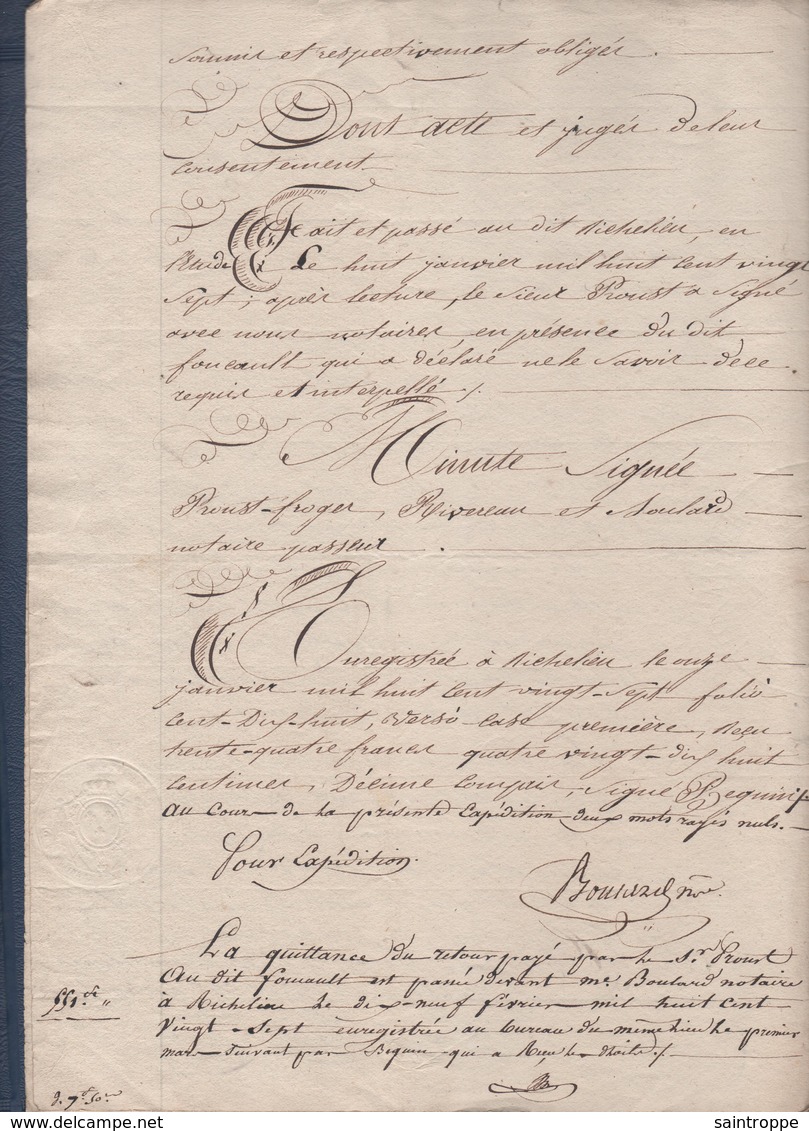 soumis et respectivement obligés.
Dont acte et jugés de leur
consentement
Fait et passé au dit Richelieu, en
l'étude Le huit janvier mil huit cent vingt
sept; après lecture, le sieur Proust a signé
avec nous notaires, en présence du dit
foucault qui a déclaré ne le savoir de ce
requis et interpellé ./.
Minute Signée
Proust-froger, Rivereau et Boulard
notaire passeur.
Enregistrée à Richelieu le onze
janvier mil huit cent vingt-sept folio
cent-dix-huit, verso case première, Reçu
trente-quatre francs quatre vingt-dix huit
centimes, Décime compris, signé Bequin ./.
Au cours de la présente Expédition deux mots rayés nuls. -
Pour Expédition.
Boulard nre.
La quittance du retour payé par le Sr. Proust
Au dit foucault est passée devant me. Boulard notaire
à Richelieu le dix-neuf février mil huit cent
vingt-sept enregistrée au bureau du même lieu le premier
mars suivant par Bequin qui a Reçu les droits ./.
saintroppe